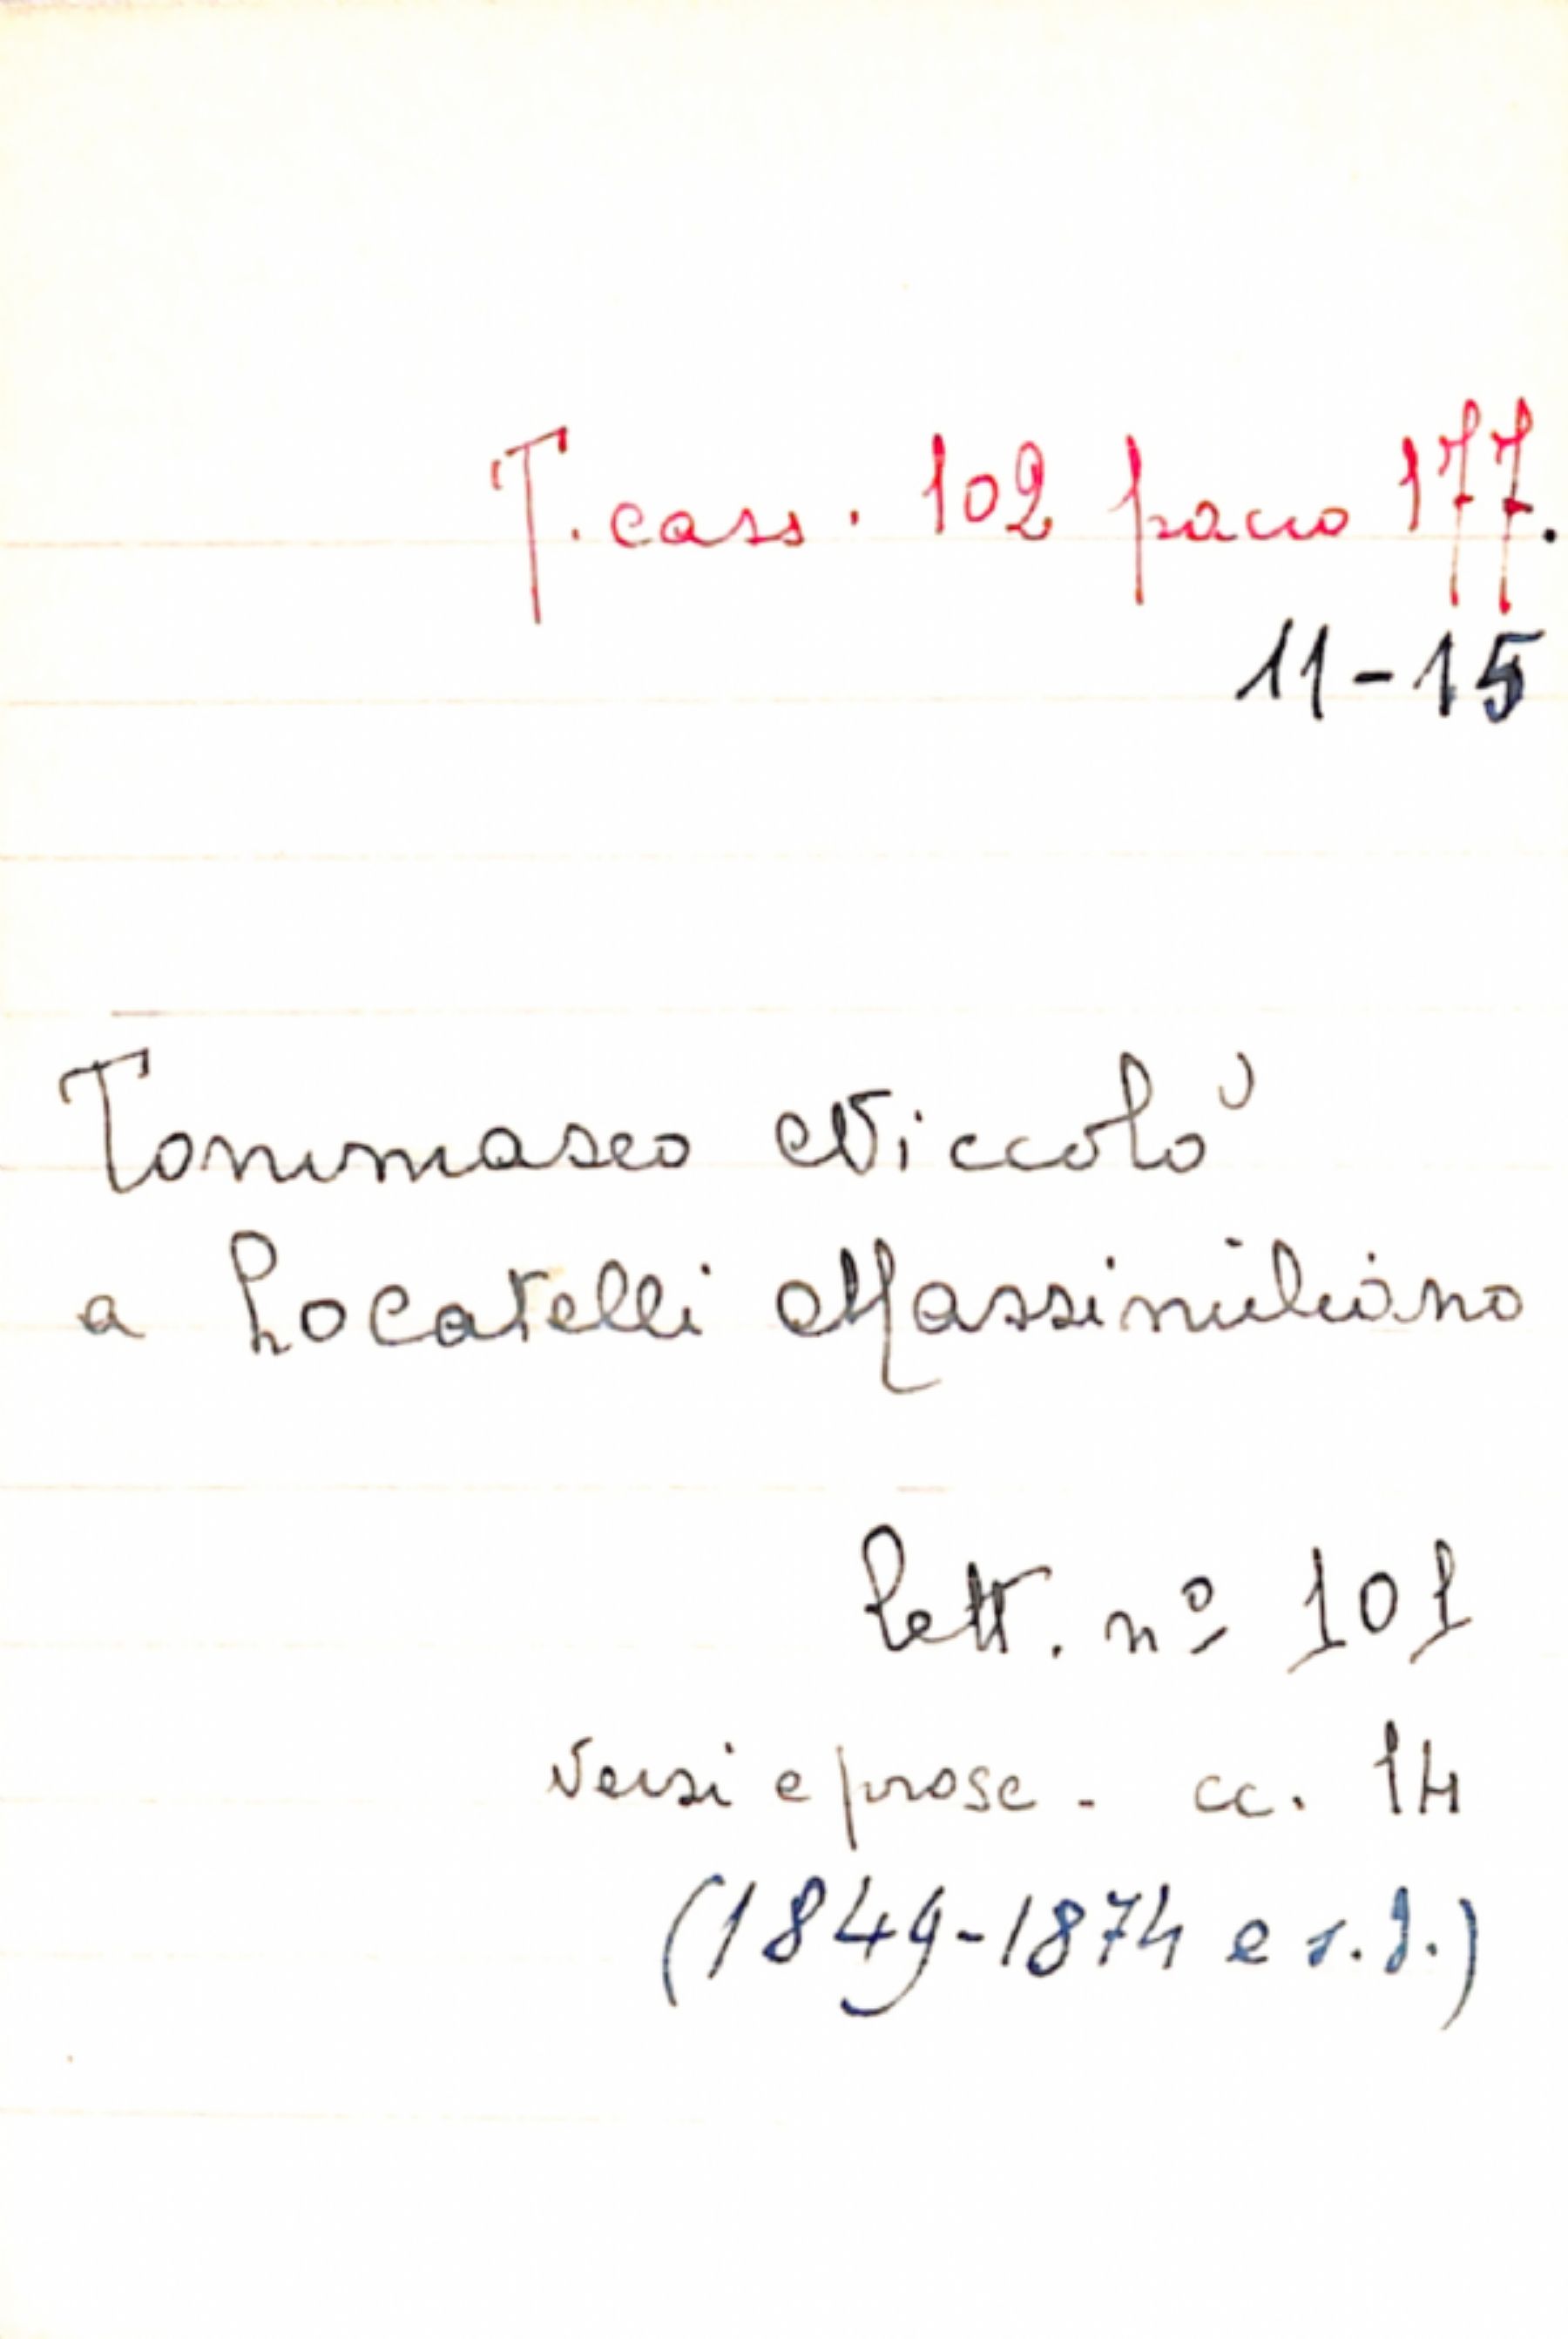 T. cass. 102 pacco 177.
11-15
Tommaseo Niccolò
a Locatelli Massimiliano
Lett. nº 101
versi e prose - cc. 14
(1849-1874 e s.d.)